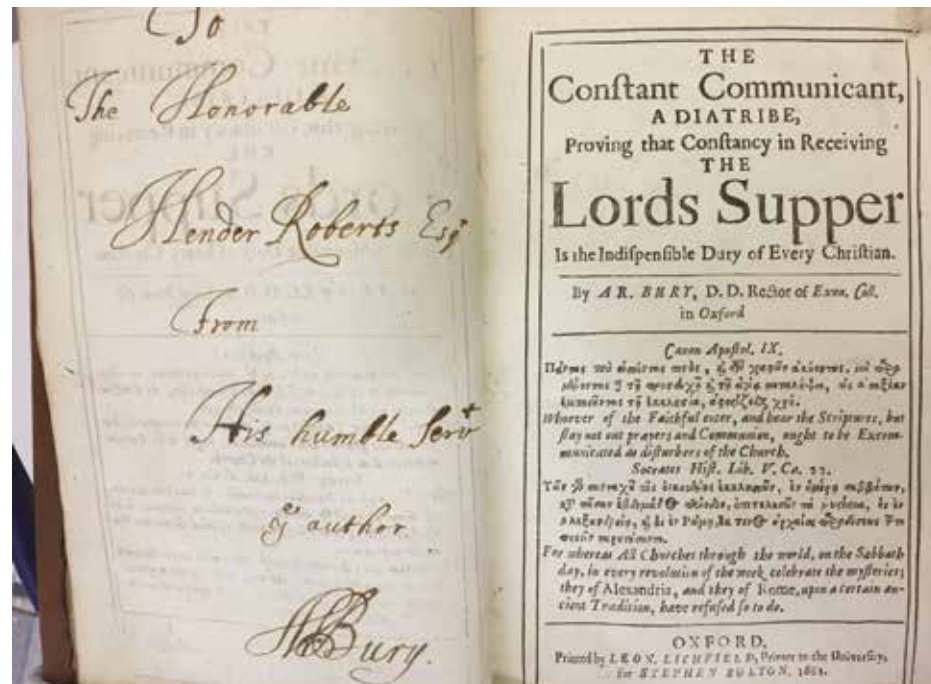 To
The Honorable
Hender Roberts Esq
From
His humble Servt
ye author.
ABury.
THE
Conſtant Communicant,
A DIATRIBE,
Proving that Conſtancy in Receiving
THE
Lords Supper
Is the Indiſpenſible Duty of Every Chriſtian.
By AR. BURY, D.D. Rector of Exon. Coll.
in Oxford
Canon Apoſtol. IX.
Whoever of the Faithful enter, and hear the Scriptures, but
ſtay not out prayers and Communion, ought to be Excom-
municated as diſturbers of the Church.
Socrates Hiſt. Lib. V. Ca. 22.
For whereas All Churches through the world, on the Sabbath
day, in every revolution of the week celebrate the myſteries;
they of Alexandria, and they of Rome, upon a certain an-
cient Tradition, have refuſed ſo to do.
OXFORD,
Printed by LEON. LICHFIELD, Printer to the Univerſity,
for STEPHEN BOLTON,